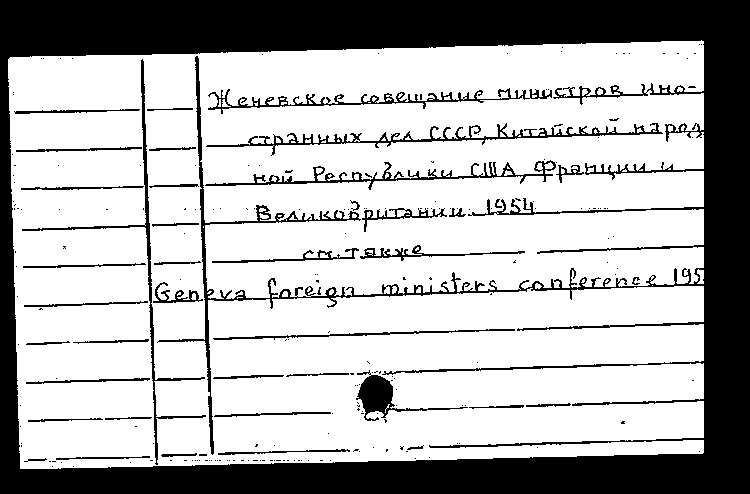 Женевское совещание министров ино-
странных дел СССР, Китайской народ
ной Республики США, Франции и
Великобритании. 1954
см. также
Geneva foreign ministers conference 195